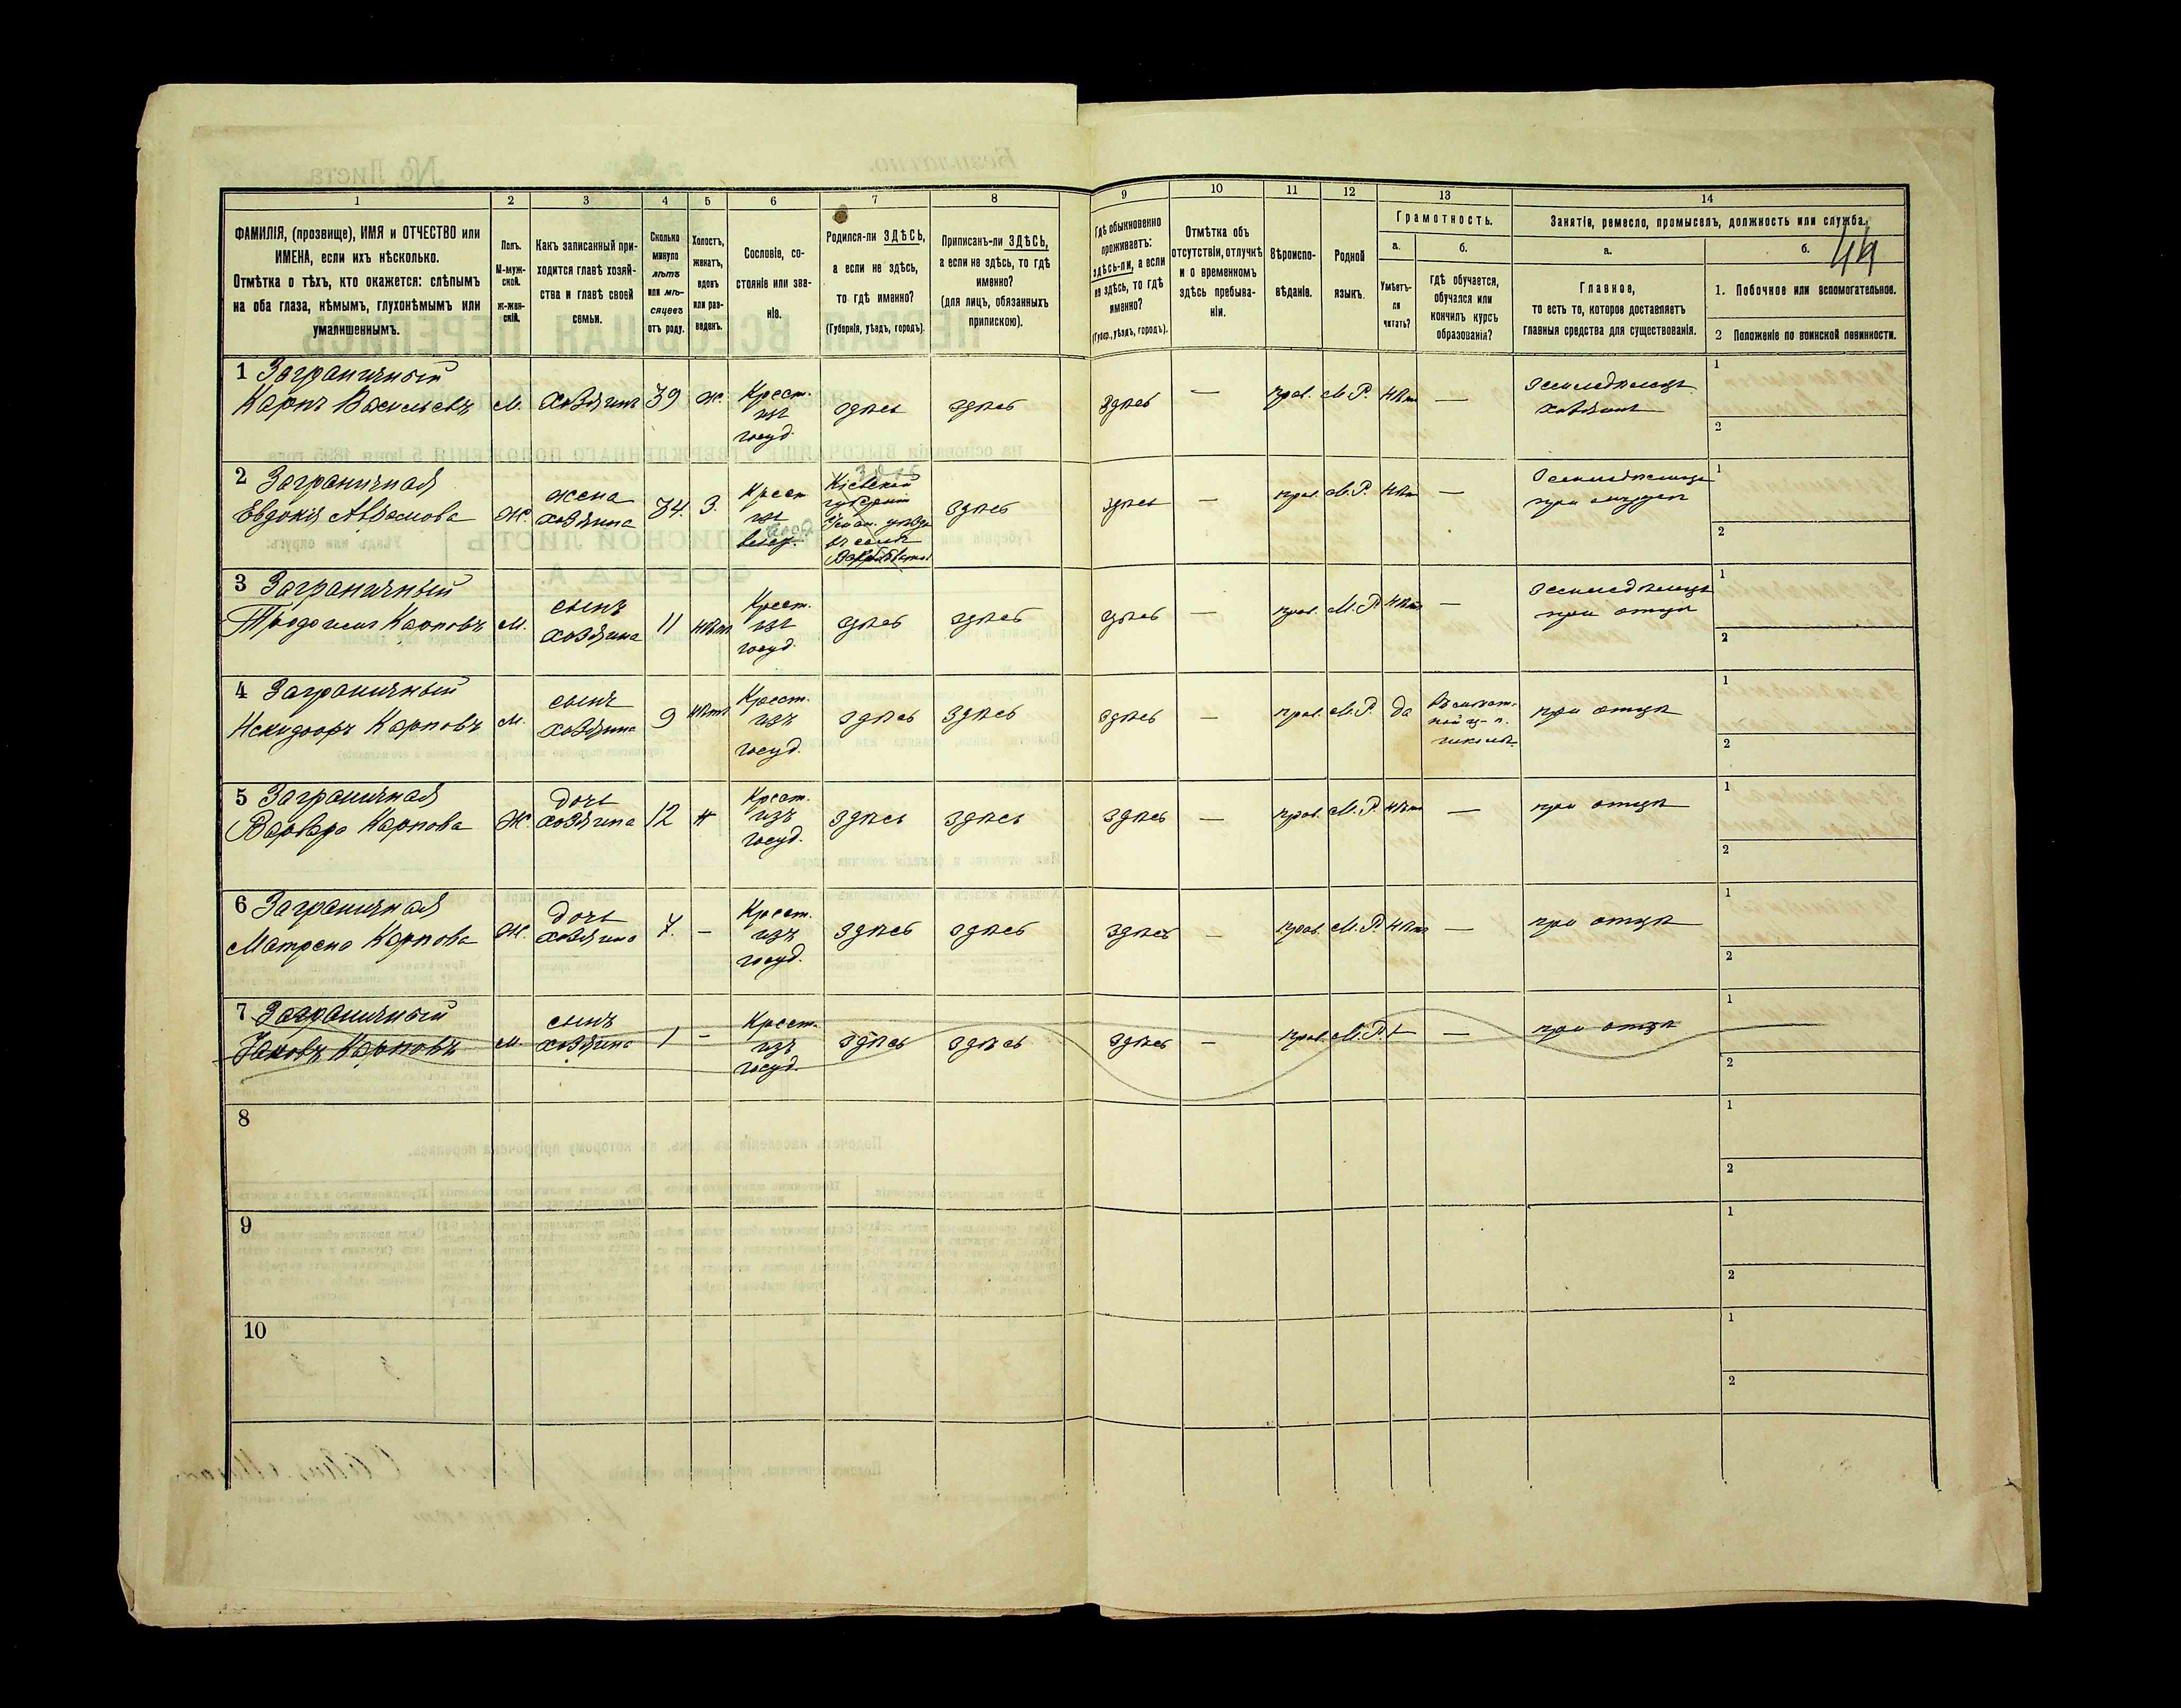 1
2
3
4
5
6
7
8
9
10
11
12
13
14
ФАМИЛІЯ, (прозвище), ИМЯ и ОТЧЕСТВО или
ИМЕНА, если ихъ нѣсколько.
Отмѣтка о тѣхъ, кто окажется: слѣпымъ
на оба глаза, нѣмымъ, глухонѣмымъ или
умалишеннымъ.
Полъ.
М-муж-
ской.
Ж-жен-
скій.
Какъ записанный при-
ходится главѣ хозяй-
ства и главѣ своей
семьи.
Сколько
минуло
лѣтъ
или мѣ-
сяцевъ
отъ роду.
Холостъ,
женатъ,
вдовъ
или раз-
веденъ.
Сословіе, со-
стояніе или зва-
ніе.
Родился-ли ЗДѢСЬ,
а если не здѣсь,
то гдѣ именно?
(Губернія, уѣздъ, городъ).
Приписанъ-ли ЗДѢСЬ,
а если не здѣсь, то гдѣ
именно?
(для лицъ, обязанныхъ
припискою).
Гдѣ обыкновенно
проживаетъ:
здѣсь-ли, а если
не здѣсь, то гдѣ
именно?
(Губер., уѣздъ, городъ).
Отмѣтка объ
отсутствіи, отлучкѣ
и о временномъ
здѣсь пребыва-
ніи.
Вѣроиспо-
вѣданіе.
Родной
языкъ.
Грамотность.
а.
Умѣетъ-
ли
читать?
б.
Гдѣ обучается,
обучался или
кончилъ курсъ
образованія?
Занятія, ремесло, промыселъ, должность или служба.
а.
Главное,
то есть то, которое доставляетъ
главныя средства для существованія.
б.
44
1. Побочное или вспомогательное.
2 Положеніе по воинской повинности.
1 Заграничный
Карпъ Васильевъ
м.
хозяинъ
39
ж.
Крест.
изъ
госуд.
здѣсь
здѣсь
здѣсь
—
прав.
М.Р.
нѣтъ
—
Земледѣлецъ
хозяинъ
1
2
2 Заграничная
Евдокія Авраамова
Ж.
жена
хозяина
34.
З.
Крест
изъ
здѣсь
Кіевской
губерніи
уѣзда
въ селѣ
здѣсь
здѣсь
—
прав.
М.Р.
нѣтъ
—
при
1
2
3 Заграничный
Карповъ
м.
сынъ
хозяина
11
нѣтъ
Крест.
изъ
госуд.
здѣсь
здѣсь
здѣсь
—
прав.
М.Р.
нѣтъ
—
Земледѣлецъ
при отцѣ
1
2
4 Заграничный
Карповъ
м.
сынъ
хозяина
9
нѣтъ
Крест.
изъ
госуд.
здѣсь
здѣсь
здѣсь
—
прав.
М.Р.
да
школѣ
при отцѣ
1
2
5 Заграничная
Варвара Карпова
Ж.
дочь
хозяина
12
н
Крест.
изъ
госуд.
здѣсь
здѣсь
здѣсь
—
прав.
М.Р.
нѣтъ
—
при отцѣ
1
2
6 Заграничная
Матрена Карпова
Ж.
дочь
хозяина
7.
–
Крест.
изъ
госуд.
здѣсь
здѣсь
здѣсь
—
прав.
М.Р.
нѣтъ
—
при отцѣ
1
2
7 Заграничный
Яковъ Карповъ
м.
сынъ
хозяина
1
–
Крест.
изъ
госуд.
здѣсь
здѣсь
здѣсь
—
прав.
М.Р.
—
—
при отцѣ
1
2
8
1
2
9
1
2
10
1
2